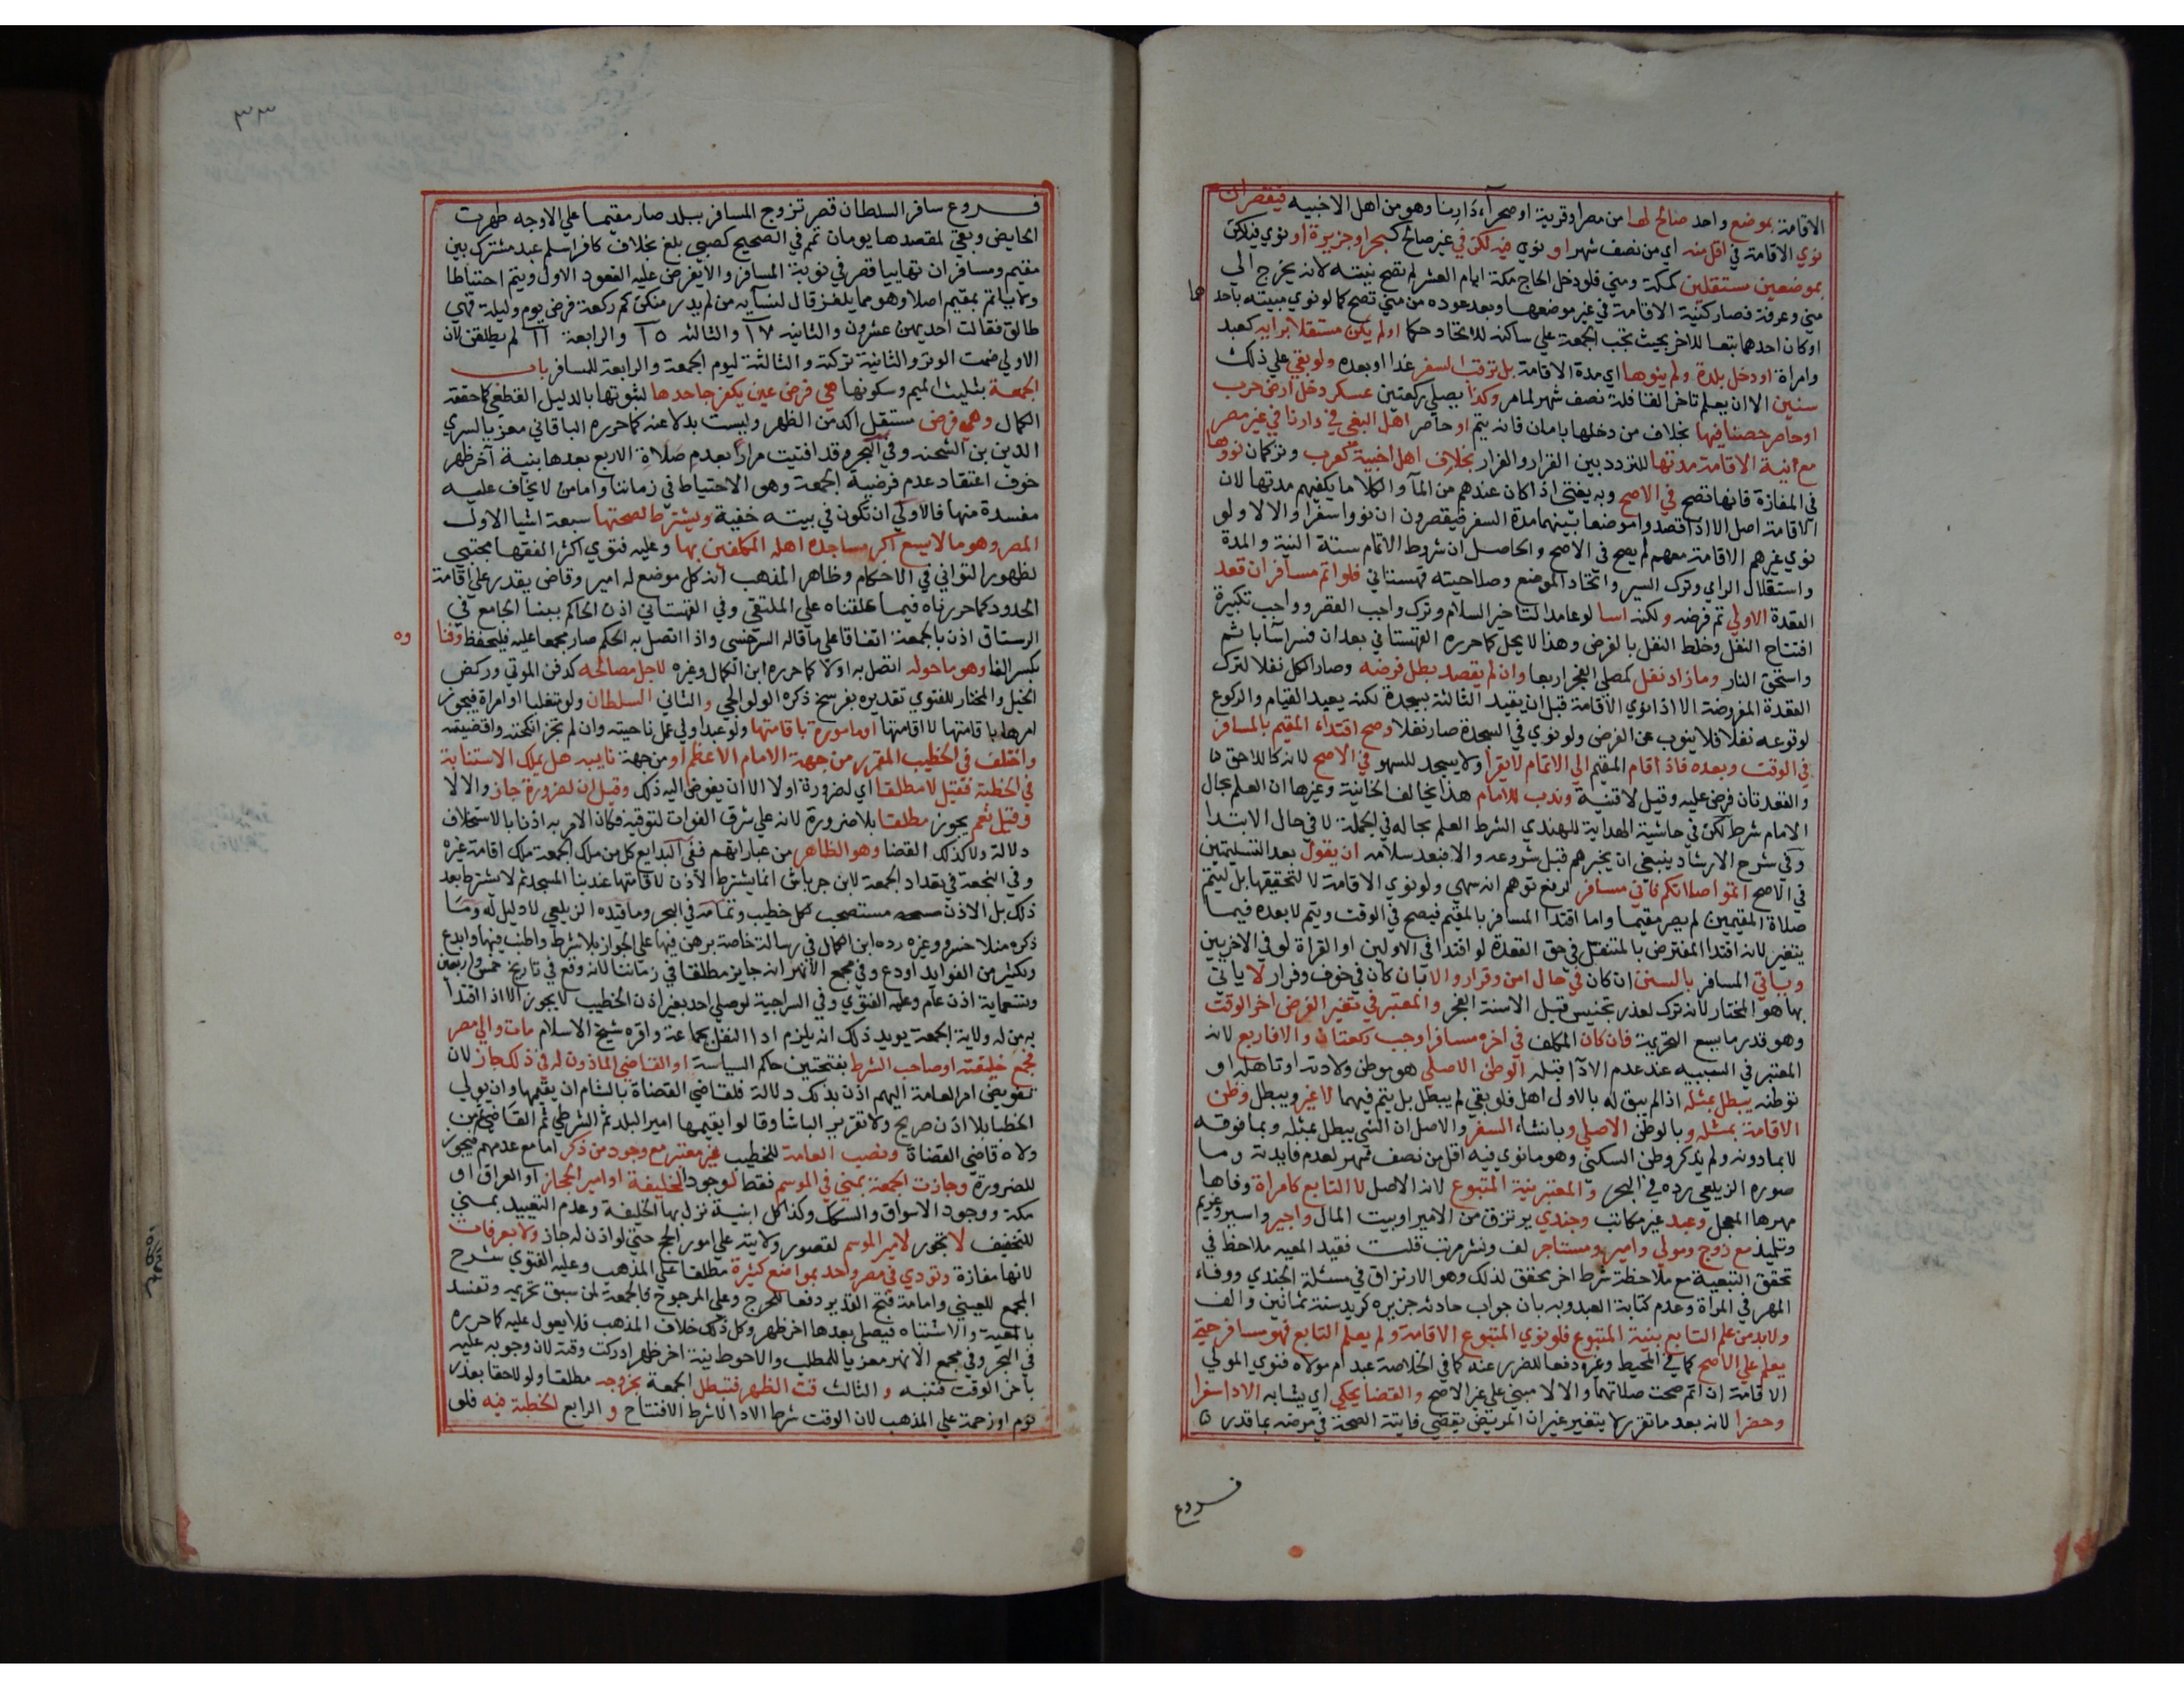 الاقامة بموضع واحد صالح لها من مصر او قرية او صحراء دارنا وهو من اهل الاخبية فيقصر ان
نوي الاقامة في اقل منه اي من نصف شهر او نوي فيه لكن في غير صالح كبحر او جزيرة او نوي فيه لكن
بموضعين مستقلين كمكة ومني فلو دخل الحاج مكة ايام العشر لم تصح نيته لانه يخرج الي
مني وعرفة فصار كنية الاقامة في غير موضعها وبعد عوده من مني تصح كما لو نوي مبيته باحد
هما
او كان احدهما تبعا للاخر بحيث تجب الجمعة علي ساكنه للاتحاد حكما او لم يكن مستقلا برايه كعبد
وامراة او دخل بلدة ولم ينوها اي مدة الاقامة بل ترقب السفر غدا او بعده ولو بقي علي ذلك
سنين الا ان يعلم تاخر القافلة نصف شهر لما مر وكذا يصلي ركعتين عسكر دخل ارض حرب
او حاصر حصنا فيها بخلاف من دخلها بامان فانه يتم او حاصر اهل البغي في دارنا في غير مصر
مع نية الاقامة مدتها للتردد بين القرار والفرار بخلاف اهل اخبية كعرب وتركمان نووها
في المفازة فانها تصح في الاصح وبه يفتي اذا كان عندهم من الما والكلا ما يكفيهم مدتها لان
الاقامة اصل الا اذا قصدوا موضعا بينهما مدة السفر فيقصرون ان نووا سفرا والا لا ولو
نوي غيرهم الاقامة معهم لم يصح في الاصح والحاصل ان شروط الاتمام ستة النية والمدة
واستقلال الراي وترك السير واتحاد الموضع وصلاحيته قهستاني فلو اتم مسافر ان قعد
القعدة الاولي تم فرضه ولكنه اسا لو عامدا لتاخير السلام وترك واجب القصر وواجب تكبيرة
افتتاح النفل وخلط النفل بالفرض وهذا لا يحل كما حرره القهستاني بعد ان فسر اسا باثم
واستحق النار وما زاد نفل كمصلي الفجر اربعا وان لم يقعد بطل فرضه وصار الكل نفلا لترك
القعدة المفروضة الا اذا نوي الاقامة قبل ان يقيد الثالثة بسجدة لكنه يعيد القيام والركوع
لوقوعه نفلا فلا ينوب عن الفرض ولو نوي في السجدة صار نفلا وصح اقتداء المقيم بالمسافر
في الوقت وبعده فاذا قام المقيم الي الاتمام لا يقرا ولا يسجد للسهو في الاصح لانه كاللاحق
والقعدتان فرض عليه وقيل لا قنية وندب للامام هذا يخالف الخانية وغيرها ان العلم بحال
الامام شرط لكن في حاشية الهداية للهندي الشرط العلم بحاله في الجملة لا في حال الابتدا
وفي شرح الارشاد ينبغي ان يخبرهم قبل شروعه والا فبعد سلامه ان يقول بعد التسليمتين
في الاصح اتموا صلاتكم فاني مسافر لدفع توهم انه سهي ولو نوي الاقامة لا لتحقيقها بل ليتم
صلاة المقيمين لم يصر مقيما واما اقتدا المسافر بالمقيم فيصح في الوقت ويتم لا بعده فيما
يتغير لانه اقتدا المفترض بالمتنفل في حق القعدة لو اقتدا في الاولين او القراة لو في الاخريين
وياتي المسافر بالسنن ان كان في حال امن وقرار والا بان كان في خوف وفرار لا ياتي
بها هو المختار لانه ترك لعذر تجنيس قيل الا سنة الفجر والمعتبر في تغير الفرض اخر الوقت
وهو قدر ما يسع التحريمة فان كان المكلف في اخره مسافرا وجب ركعتان والا فاربع لانه
المعتبر في السببية عند عدم الادا قبله الوطن الاصلي هو موطن ولادته او تاهله او
توطنه يبطل بمثله اذا لم يبق له بالاول اهل فلو بقي لم يبطل بل يتم فيهما لا غير ويبطل وطن
الاقامة بمثله وبالوطن الاصلي وبانشاء السفر والاصل ان الشي يبطل بمثله وبما فوقه
لا بما دونه ولم يذكر وطن السكني وهو ما نوي فيه اقل من نصف شهر لعدم فايدته وما
صوره الزيلعي رده في البحر والمعتبر نية المتبوع لانه الاصل لا التابع كامراة وفاها
مهرها المعجل وعبد غير مكاتب وجندي يرتزق من الامير او بيت المال واجير واسير وغريم
وتلميذ مع زوج ومولي وامير ومستاجر لف ونشر مرتب قلت فقيد المعية ملاحظ في
تحقق التبعية مع ملاحظة شرط اخر محقق لذلك وهو الارتزاق في مسئلة الجندي ووفاء
المهر في المراة وعدم كتابة العبد وبه بان جواب حادثة جزيره كريد سنة ثمانين والف
ولابد من علم التابع بنية المتبوع فلو نوي المتبوع الاقامة ولم يعلم التابع فهو مسافر حتي
يعلم علي الاصح كما في المحيط وغيره دفعا للضرر عنه كما في الخلاصة عبد ام مولاه فنوي المولي
الاقامة ان اتم صحت صلاتهما والا لا مبني علي غير الاصح والقضا يحكي اي يشابه الادا سفرا
وحضرا لانه بعد ما تقرر لا يتغير غير ان المريض يقضي فايتة الصحة في مرضه بما قدر
فروع
٣٣
فروع سافر السلطان قصر تزوج المسافر ببلد صار مقيما علي الاوجه طهرت
الحايض وبقي لمقصدها يومان تتم في الصحيح كصبي بلغ بخلاف كافر اسلم عبد مشترك بين
مقيم ومسافر ان تهاييا قصر في نوبة المسافر والا يفرض عليه القعود الاول ويتم احتياطا
ولا ياتم بمقيم اصلا وهو مما يلغز قال لنسايه من لم يدر منكن كم ركعة فرض يوم وليلة فهي
طالق فقالت احديهن عشرون والثانية ١٧ والثالثة ١٥ والرابعة ١١ لم يطلقن لان
الاولي ضمت الوتر والثانية تركته والثالثة ليوم الجمعة والرابعة للمسافر باب
الجمعة بتثليث الميم وسكونها هي فرض عين يكفر جاحدها لثبوتها بالدليل القطعي كما حققه
الكمال وهي فرض مستقل اكد من الظهر وليست بدلا عنه كما حرره الباقاني معزيا لسري
الدين بن الشحنه وفي البحر وقد افتيت مرارا بعدم صلاة الاربع بعدها بنية آخر ظهر
خوف اعتقاد عدم فرضية الجمعة وهو الاحتياط في زماننا واما من لا يخاف عليه
مفسدة منها فالاولي ان تكون في بيته خفية ويشترط لصحتها سبعة اشيا الاول
المصر وهو ما لا يسع اكبر مساجده اهله المكلفين بها وعليه فتوي اكثر الفقها مجتبي
لظهور التواني في الاحكام وظاهر المذهب انه كل موضع له امير وقاض يقدر علي اقامة
الحدود كما حررناه فيما علقناه علي الملتقي وفي القهستاني اذن الحاكم ببنا الجامع في
الرستاق اذن بالجمعة اتفاقا علي ما قاله السرخسي واذا اتصل به الحكم صار مجمعا عليه فليحفظ وفنا
وه
بكسر الفا وهو ما حوله اتصل به اولا كما حرره ابن الكمال وغيره لاجل مصالحه كدفن الموتي وركض
الخيل والمختار للفتوي تقديره بفرسخ ذكره الولوالجي والثاني السلطان ولو متغلبا او امراة فيجوز
امرها باقامتها لا اقامتها او مامورة باقامتها ولو عبدا ولي عمل ناحيته وان لم تجز انكحته واقضيته
واختلف في الخطيب المقرر من جهة الامام الاعظم او من جهة نايبه هل يملك الاستنابة
في الخطبة فقيل لا مطلقا اي لضرورة او لا الا ان يفوض اليه ذلك وقيل ان لضرورة جاز والا لا
وقيل نعم يجوز مطلقا بلا ضرورة لانه علي شرف الفوات لتوقيته فكان الامر به اذنا بالاستخلاف
دلالة ولا كذلك القضا وهو الظاهر من عباراتهم ففي البدايع كل من ملك الجمعة ملك اقامة غيره
وفي النجعة في تعداد الجمعة لابن جرباش انما يشترط الاذن لاقامتها عند بنا المسجد ثم لا يشترط بعد
ذلك بل الاذن مستصحب لكل خطيب وتمامه في البحر وما قيده الزيلعي لا دليل له وما
ذكره منلا خسرو وغيره رده ابن الكمال في رسالة خاصة برهن فيها علي الجواز بلا شرط واطنب فيها وابدع
ولكثير من الفوايد اودع وفي مجمع الانهر انه جايز مطلقا في زماننا لانه وقع في تاريخ خمس واربعين
وتسعماية اذن عام وعليه الفتوي وفي السراجية لو صلي احد بغير اذن الخطيب لا يجوز الا اذا اقتدا
به من له ولاية الجمعة يويد ذلك انه يلزم ادا النفل بجماعة واقره شيخ الاسلام مات والي مصر
فجمع خليفته او صاحب الشرط بفتحتين حاكم السياسة او القاضي الماذون له في ذلك جاز لان
تفويض امر العامة اليهم اذن بذلك دلالة فلقاضي القضاة بالشام ان يقيمها وان يولي
الخطبا بلا اذن صريح ولا تقرير الباشا وقالوا يقيمها امير البلد ثم الشرطي ثم القاضي ثم من
ولاه قاضي القضاة ونصب العامة للخطيب غير معتبر مع وجود من ذكر اما مع عدمهم فيجوز
للضرورة وجازت الجمعة بمني في الموسم فقط لوجود الخليفة او امير الحجاز او العراق او
مكة ووجود الاسواق والسكك وكذا كل ابنية نزل بها الخليفة وعدم التعييد بمني
للتخفيف لا تجوز لامير الموسم لقصور ولايته علي امور الحج حتي لو اذن له جاز ولا بعرفات
لانها مفازة وتودي في مصر واحد بمواضع كثيرة مطلقا علي المذهب وعليه الفتوي شرح
المجمع للعيني وامامة فتح القدير دفعا للحرج وعلي المرجوح فالجمعة لمن سبق تحريمه وتفسد
بالمعية والاشتباه فيصلي بعدها اخر ظهر وكل ذلك خلاف المذهب فلا يعول عليه كما حرره
في البحر وفي مجمع الانهر معزيا للمطلب والاحوط نية اخر ظهر ادركت وقته لان وجوبه عليه
باخر الوقت فتنبه والثالث وقت الظهر فتبطل الجمعة بخروجه مطلقا ولو لاحقا بعذر
نوم او زحمة علي المذهب لان الوقت شرط الادا لا شرط الافتتاح والرابع الخطبة فيه فلو